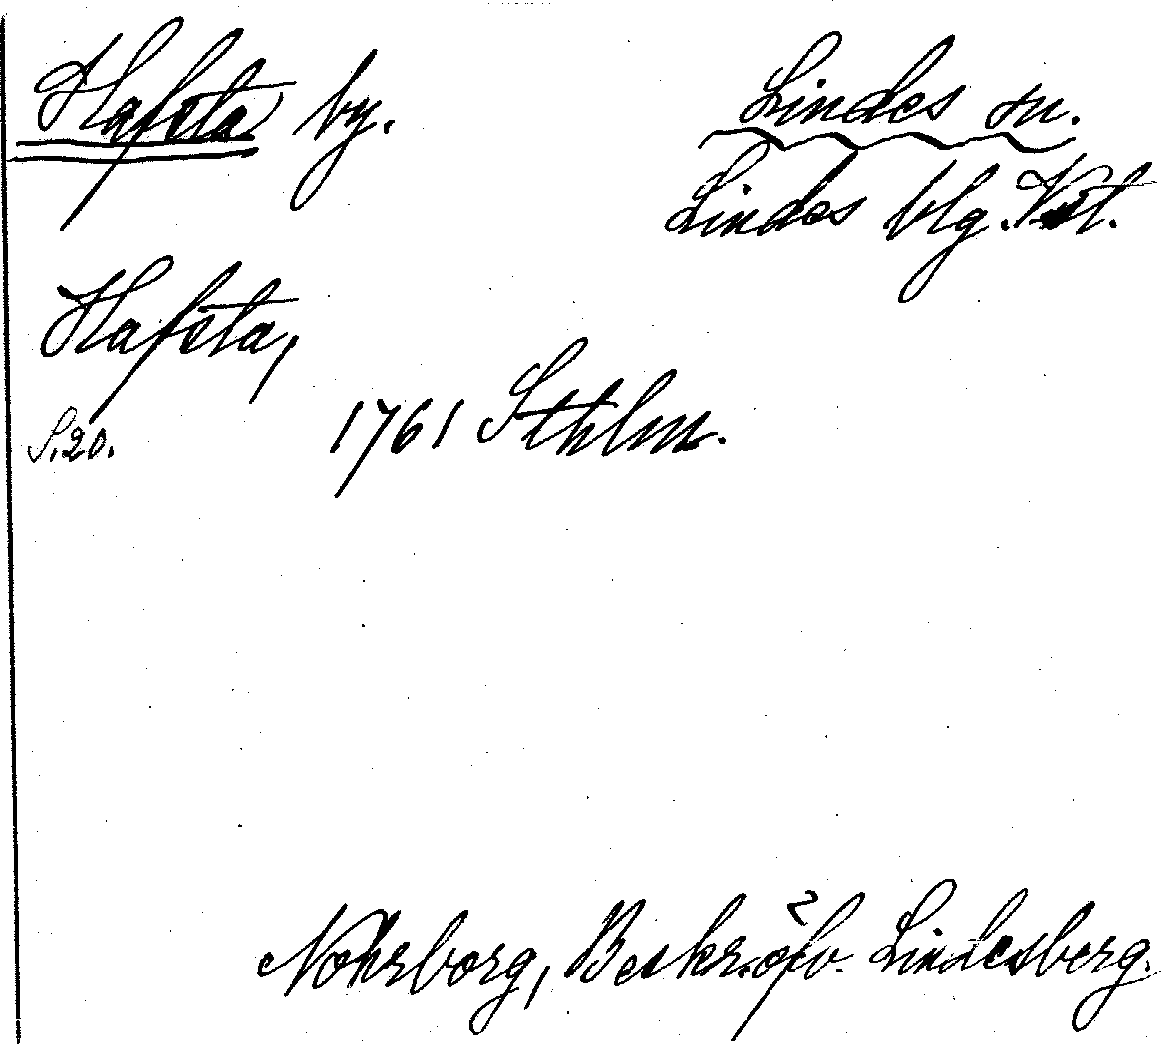 Hafsta by. Lindes sn.
Lindes blg. Vstl.
Hafsta,
S.20. 1761 Sthlm.
Nohrborg, Beskr. öfv. Lindesberg.